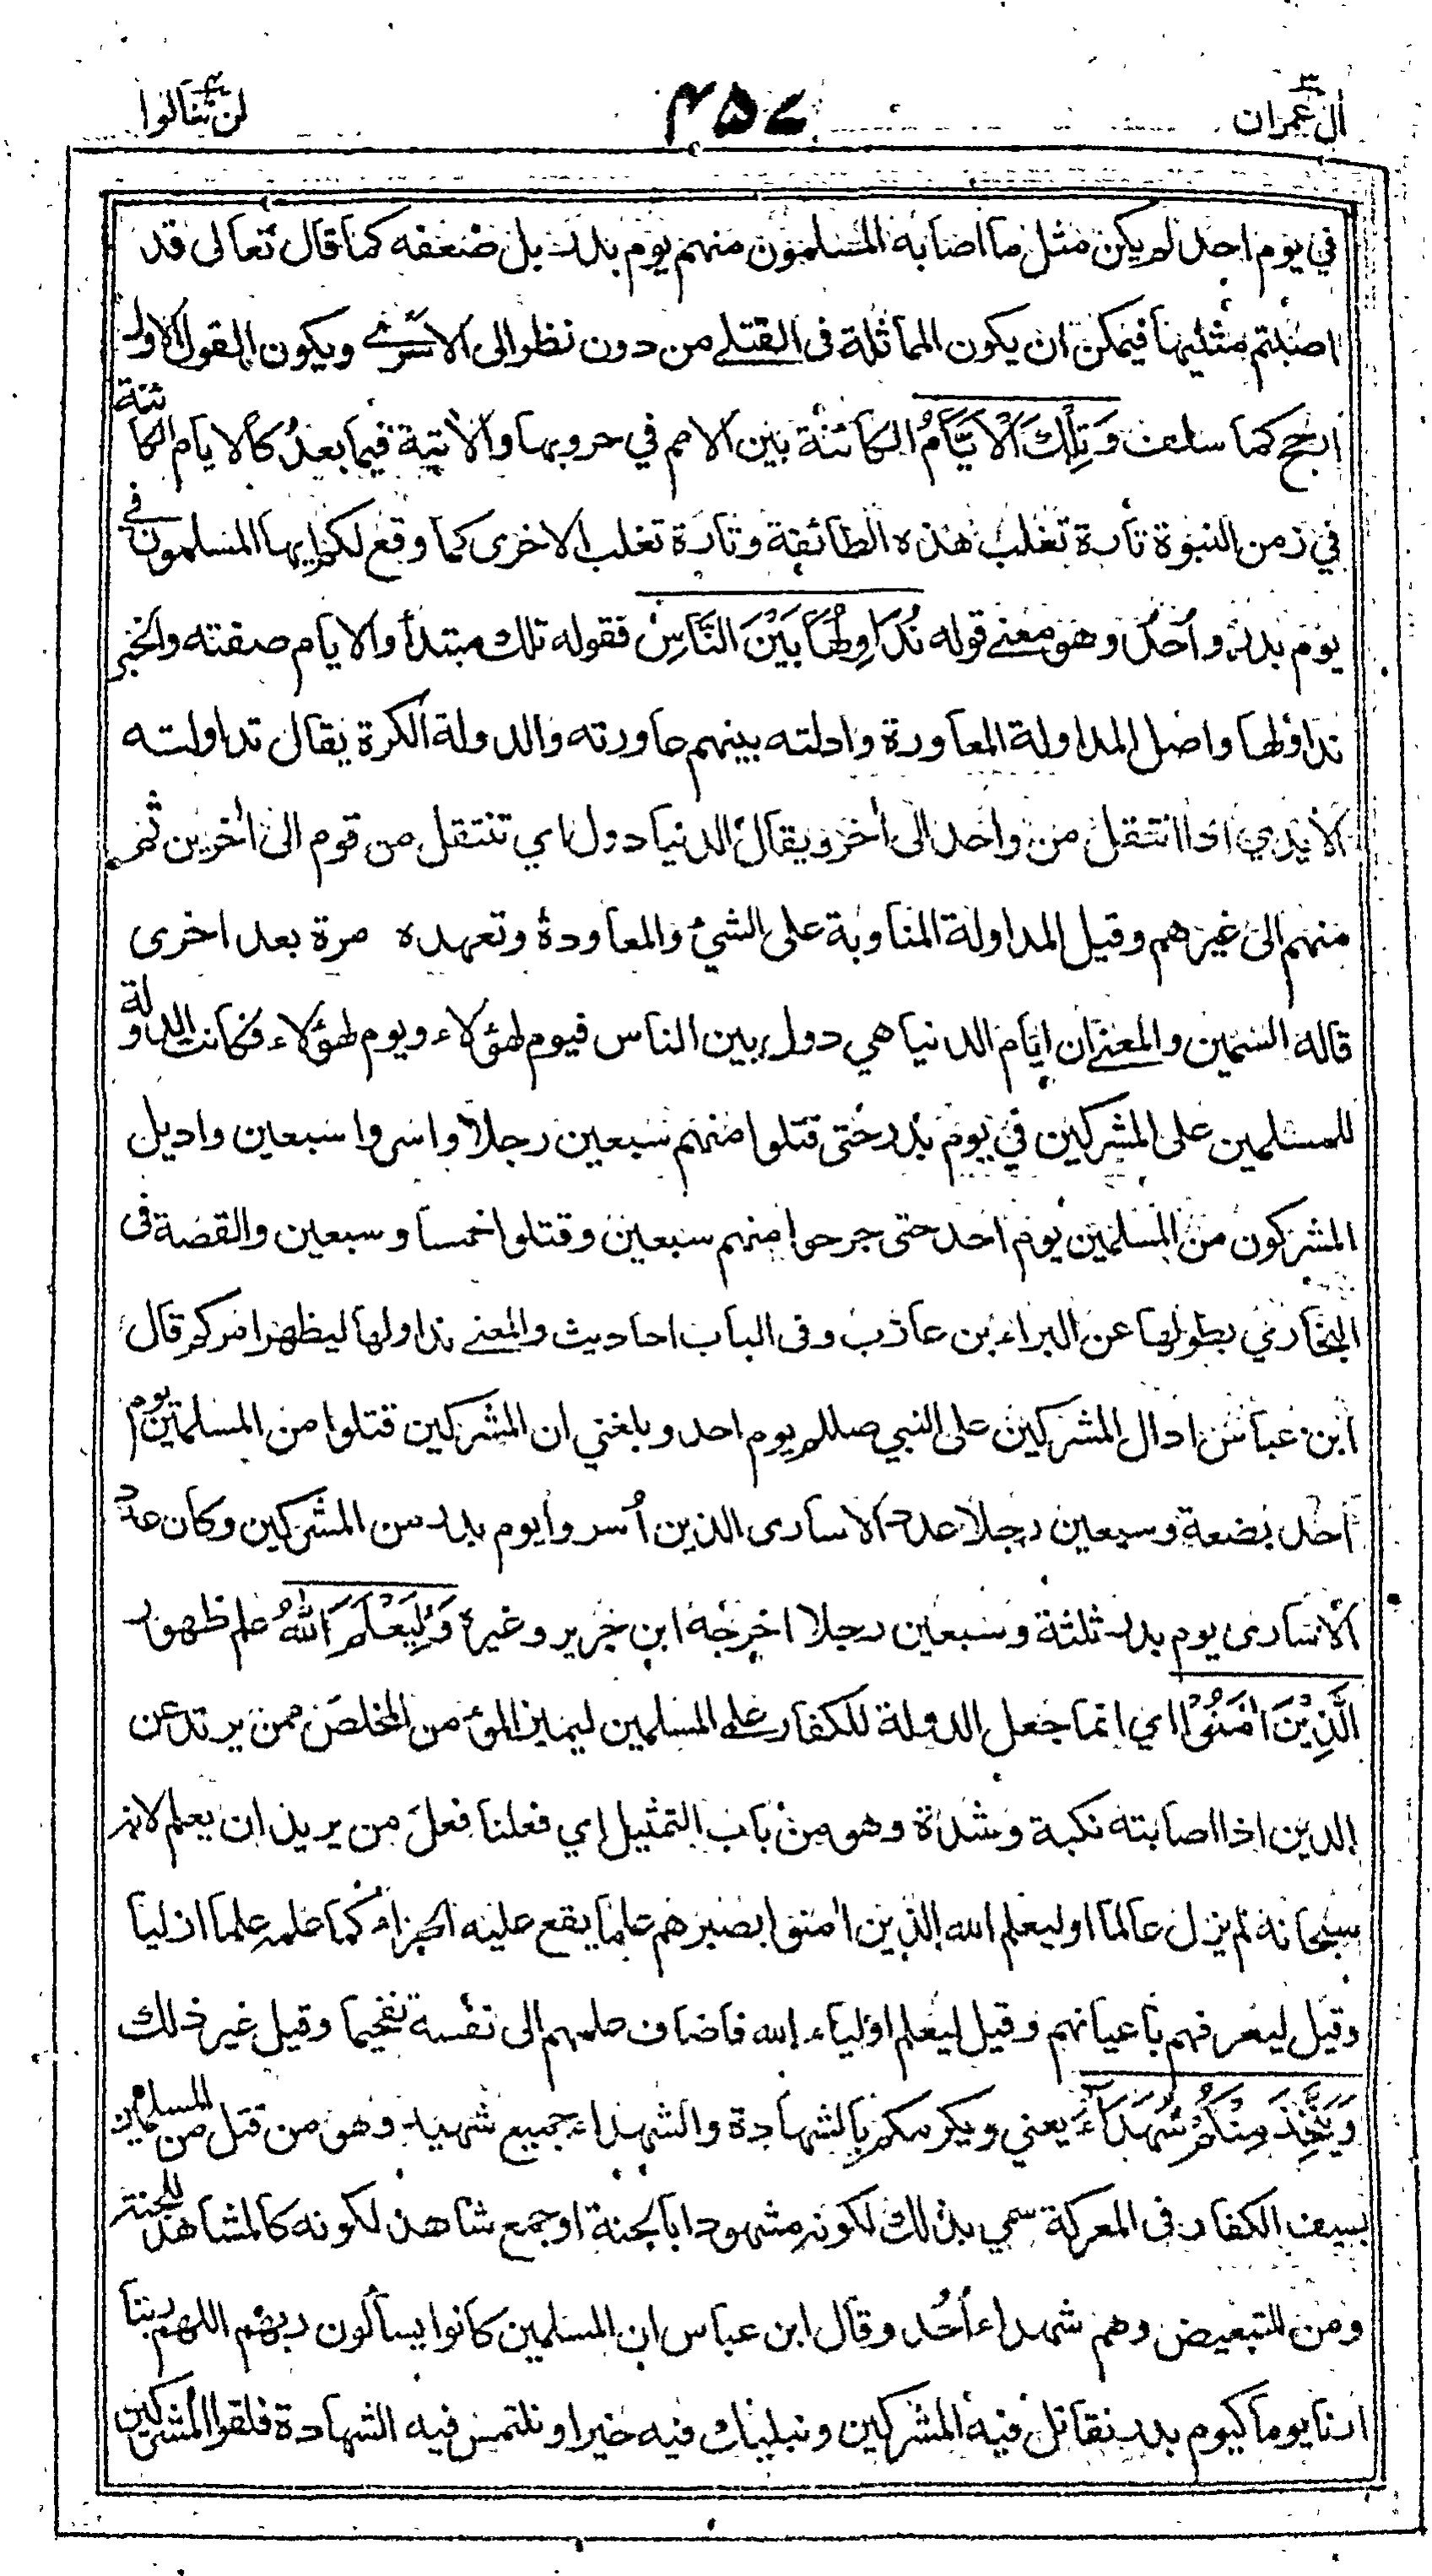 اٰل عمران ٣
٤٥٧
لن تنالوا ٤
في يوم احد لم يكن مثل ما اصابه المسلمون منهم يوم بدر بل ضعفه كما قال تعالى قد
اصبتم مثليها فيمكن ان يكون المماثلة فى القتلے من دون نظر الى الاسرے ويكون القول الاول
ارجح كما سلف وَتِلْكَ الْاَيَّامُ الكائنة بين الامم في حروبها والاٰتية فيما بعدُ كالايام الكائنة
في زمن النبوة تارة تغلب هذه الطائفة وتارة تغلب الاخرى كما وقع لكم ايها المسلمون في
يوم بدر واُحُد وهو معنے قوله نُدَاوِلُهَا بَيْنَ النَّاسِ فقوله تلك مبتدأ والايام صفته والخبر
نداولها واصل المداولة المعاورة وادلته بينهم عاورته والدولة الكرة يقال تداولته
الايدي اذا انتقل من واحد الى اٰخر ويقال الدنيا دول اي تنتقل من قوم الى اٰخرين ثم
منهم الى غيرهم وقيل المداولة المناوبة على الشئ والمعاودة وتعهده مرة بعد اخرى
قاله السمين والمعنے ان ايام الدنيا هي دول بين الناس فيوم لهؤلاء ويوم لهؤلاء فكانت الدولة
للمسلمين على المشركين في يوم بدر حتى قتلوا منهم سبعين رجلا واسروا سبعين واديل
المشركون من المسلمين يوم احد حتى جرحوا منهم سبعين وقتلوا خمسا وسبعين والقصة فى
البخاري بطولها عن البراء بن عازب وفى الباب احاديث والمعنے نداولها ليظهر امركم قال
ابن عباس ادال المشركين على النبي صللم يوم احد وبلغني ان المشركين قتلوا من المسلمين يوم
احد بضعة وسبعين رجلا عدد الاسارى الذين اُسروا يوم بدر من المشركين وكان عدد
الاسارى يوم بدر ثلثة وسبعين رجلا اخرجه ابن جرير وغيره وَلِيَعْلَمَ اللّٰهُ علم ظهور
الَّذِيْنَ اٰمَنُوْا اي انما جعل الدولة للكفار علے المسلمين ليميز المؤمن المخلص ممن يرتد عن
الدين اذا اصابته نكبة وشدة وهو من باب التمثيل اي فعلنا فعل من يريد ان يعلم لانه
سبحانه لم يزل عالما او ليعلم الله الذين اٰمنوا بصبرهم علما يقع عليه الجزاء كما علمه علما ازليا
وقيل ليعرفهم باعيانهم وقيل ليعلم اولياء الله فاضاف علمهم الى نفسه تفخيما وقيل غير ذلك
وَيَتَّخِذَ مِنْكُمْ شُهَدَآءَ يعني ويكرمكم بالشهادة والشهداء جميع شهيد وهو من قتل من المسلمين
بسيف الكفار فى المعركة سمي بذلك لكونه مشهودا بالجنة او جمع شاهد لكونه كالمشاهد للجنة
ومن للتبعيض وهم شهداء اُحُد وقال ابن عباس ان المسلمين كانوا يسألون ربهم اللهم ربنا
ارنا يوما كيوم بدر نقاتل فيه المشركين ونبليك فيه خيرا ونلتمس فيه الشهادة فلقوا المشركين